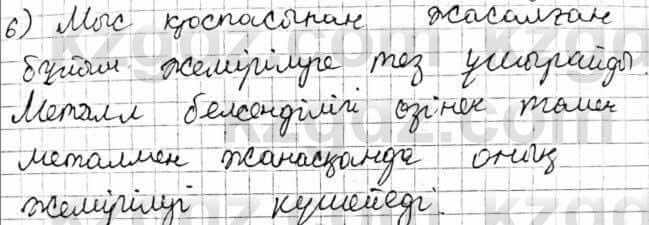 б) Мыс қоспасынан жасалған
бұйым жемірілуге тез ұшырайды.
Металл белсенділігі өзінен төмен
металмен жанасқанда оның
жемірілуі күшейеді.